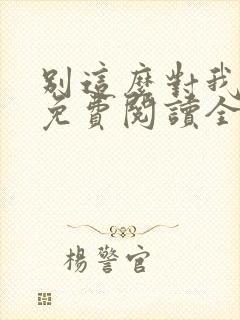 別這麼對我
免費閱讀全
楊警官